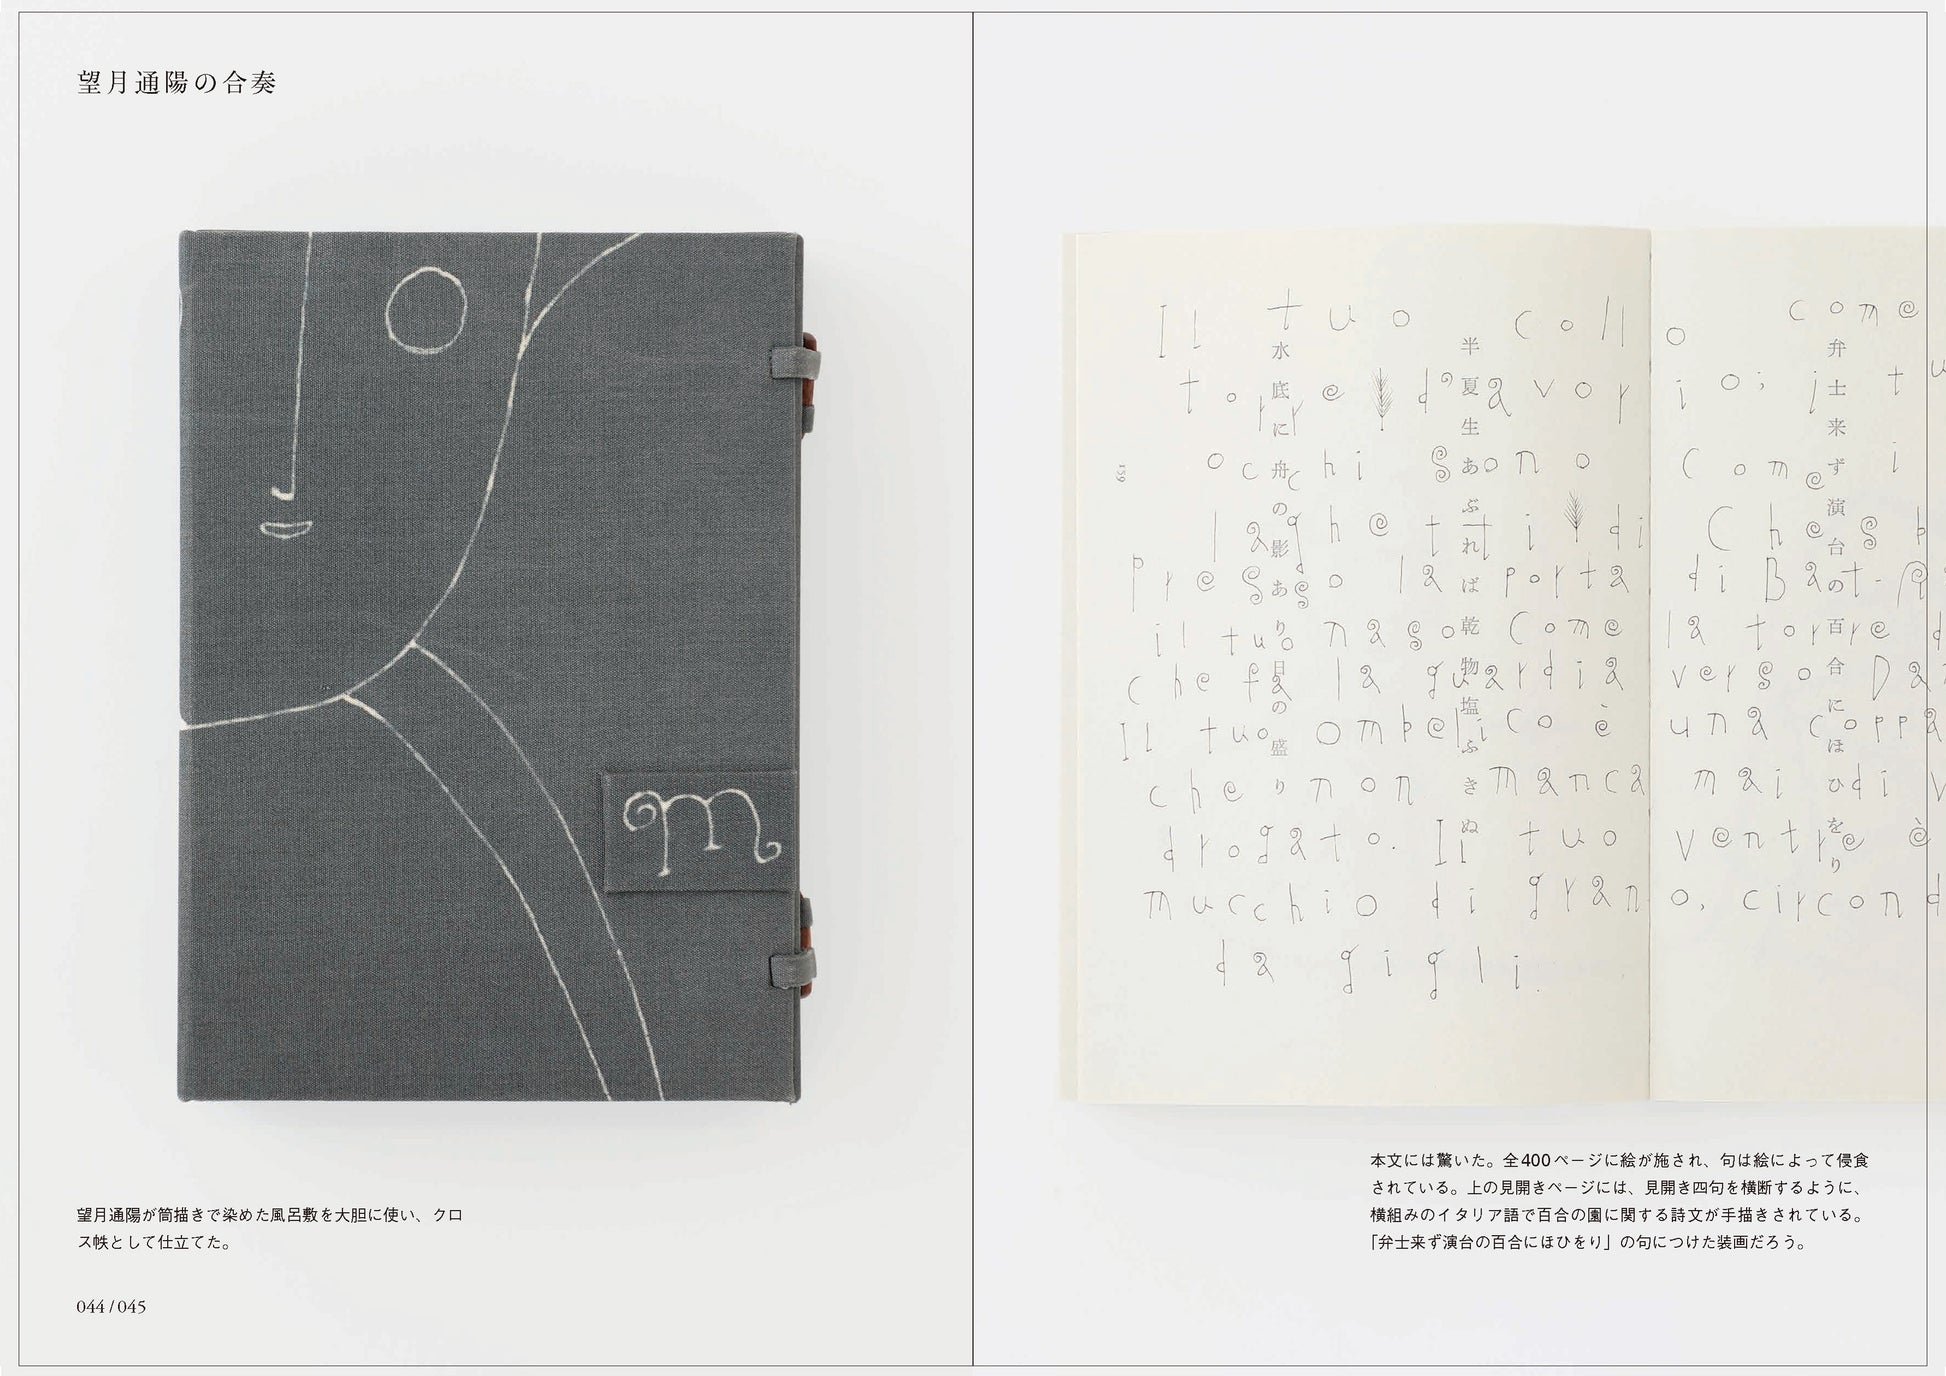 望月通陽の合奏
m
望月通陽が筒描きで染めた風呂敷を大胆に使い、クロ
ス帙として仕立てた。
044 / 045
Il tuo collo come
torre d'avorio; i tu
occhi sono come i
laghetti di Chesb
presso la porta di Bat-R
il tuo naso come la torre d
che fa la guardia verso Da
Il tuo ombelico è una coppa
che non manca mai di v
drogato. Il tuo ventre è
mucchio di grano, circond
da gigli.
弁士来ず演台の百合にほひをり
半夏生あぶれば乾物塩ふきぬ
水底に舟の影あり日の盛り
139
本文には驚いた。全400ページに絵が施され、句は絵によって侵食
されている。上の見開きページには、見開き四句を横断するように、
横組みのイタリア語で百合の園に関する詩文が手描きされている。
「弁士来ず演台の百合にほひをり」の句につけた装画だろう。